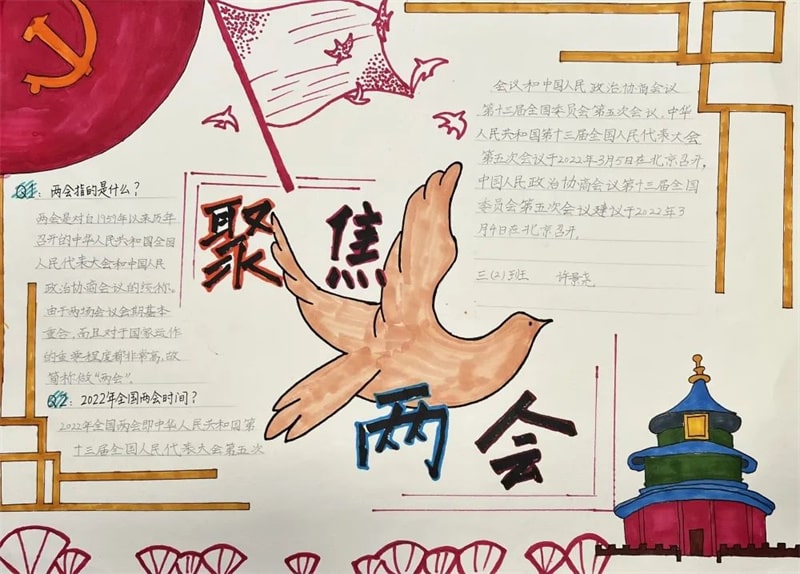 聚焦
两会
Q1：两会指的是什么？
两会是对自1959年以来历年
召开的中华人民共和国全国
人民代表大会和中国人民
政治协商会议的统称。
由于两场会议会期基本
重合，而且对于国家运作
的重要程度都非常高，故
简称做“两会”。
Q2：2022年全国两会时间？
2022年全国两会即中华人民共和国第
十三届全国人民代表大会第五次
会议和中国人民政治协商会议
第十三届全国委员会第五次会议，中华
人民共和国第十三届全国人民代表大会
第五次会议于2022年3月5日在北京召开，
中国人民政治协商会议第十三届全国
委员会第五次会议建议于2022年3
月4日在北京召开。
三（2）班 许景尧